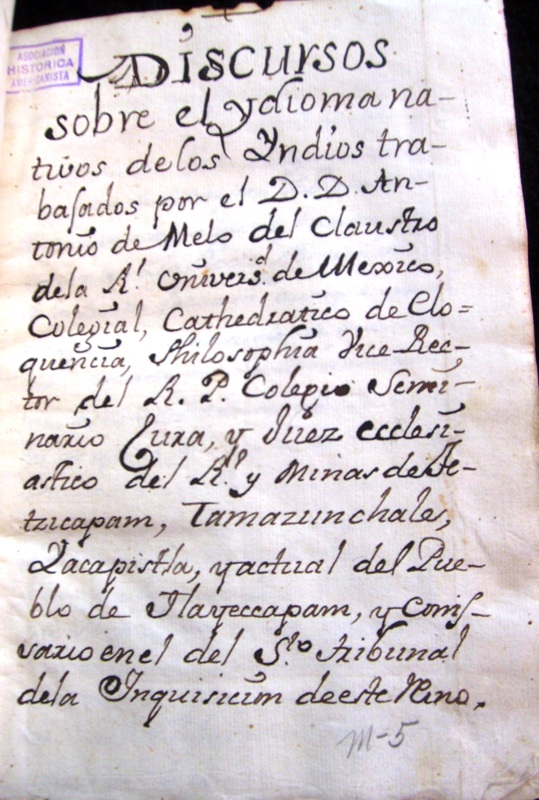 ASOCIACION
HISTORICA
AMERICANISTA
DiScursos
sobre el ydioma na-
tivos de los Yndios tra-
baſados por el D. D. An-
tonio de Melo del Claustro
dela Rl. Universd. de Mexico,
Colegial, Cathedratico de Elo=
quencia, Philosophia Vice-Rec-
tor del R. P. Colegio Semi-
nario Cura, y Juez ecclesi-
astico del Rl. y Minas de
tzicapam, Tamazunchale,
Yacapistla, y actual del Pue-
blo de Tlayeccapam, y Comiſ-
sario en el del Sto. tribunal
dela Inquisicion de este Rino.
M-5